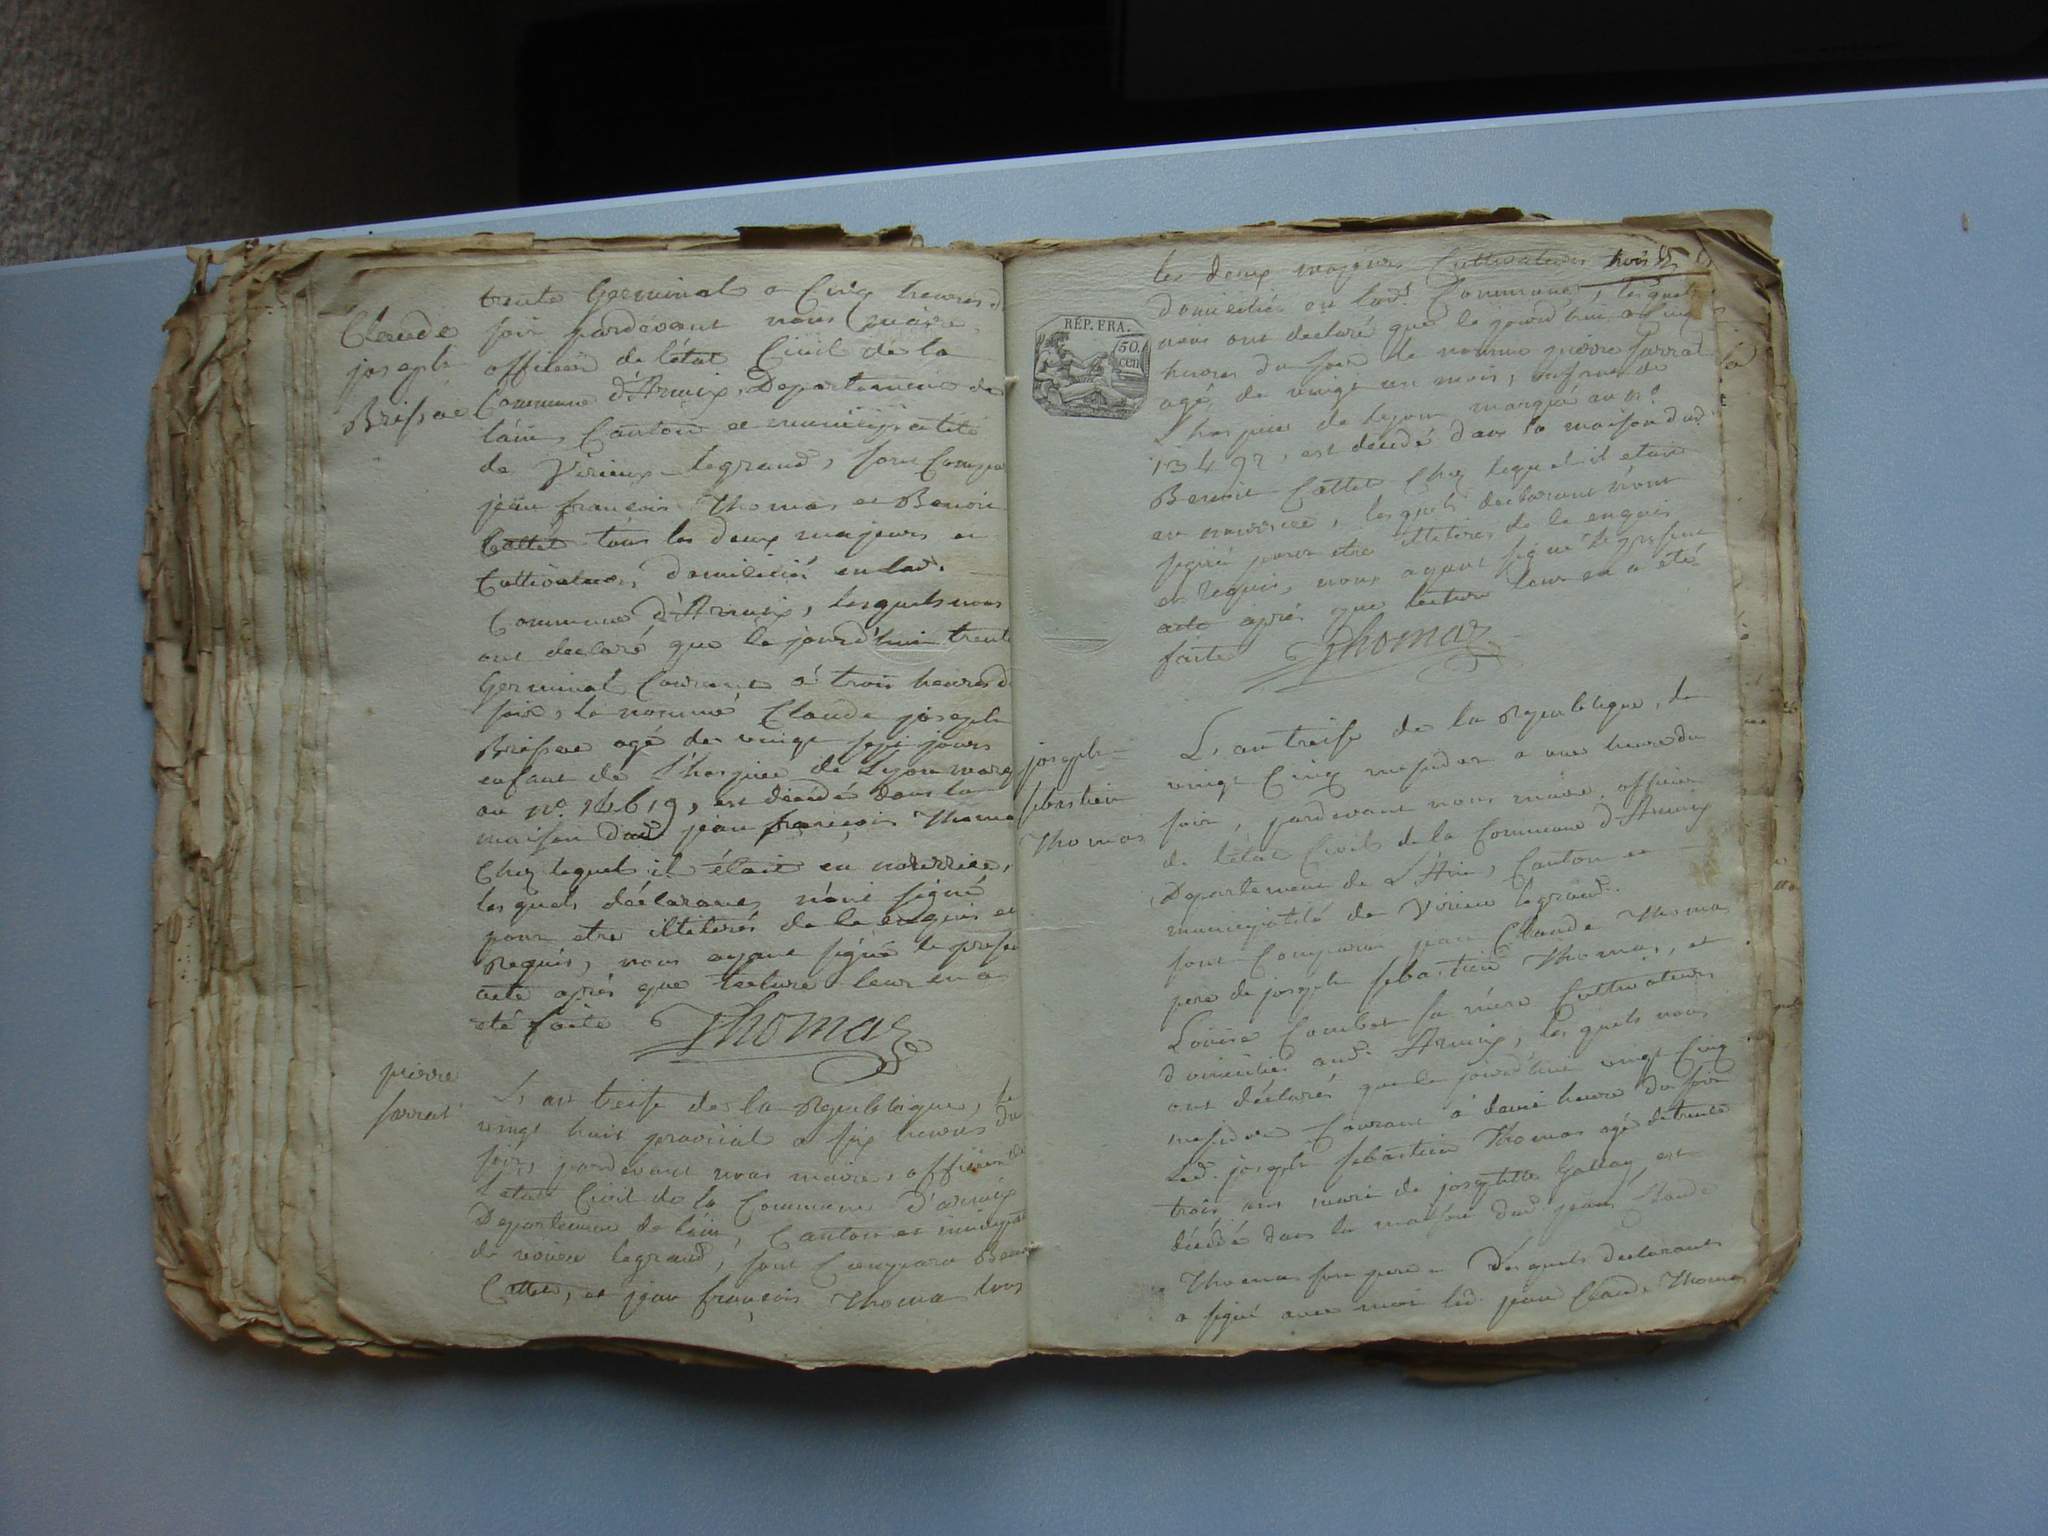 Claude
joseph
Brissac
trente Germinal a Cinq heures d
soir pardevant nous maire
officier de létat Civil de la
Commune d'Armix, Departement de
láin, Canton et municipalité
de Virieux-legrand, sont Compa
jean françois Thomas et Benoit
Cattet tous les deux majeurs et
Cultivateurs domiciliés en lad.
Commune d'Armix, lesquels nous
ont declaré que le jourd'hui trente
Germinal Courant á trois heures d
soir, le nommé Claude joseph
Brissac agé de vingt sept jours
enfant de L'hospice de Lyon marq
au n° 14619, est décédé dans la
maison dud jean françois Thoma
Chez lequel il était en nourrice,
lesquels déclarans n'ont signé
pour etre illiterés de le enquis et
Requis, nous ayant signé le prese
acte aprés que lecture leur en a
été faite Thomas
pierre
sarrat
L'an treise de la Republique, le
vingt huit prairial a six heures du
soir, pardevant nous maire, officier de
L'etat Civil de la Commune d'armix
Departement de láin, Canton et municipali
de virieu legrand, sont Comparu Beno
Cattet, et jean françois Thomas tous
les deux majeurs Cultivateurs
domiciliés en lad. Commune, lesquels
nous ont declaré que le jourd'hui a cinq
heures du soir le nommé pierre sarrat
agé de vingt un mois, enfant de
L'hospice de Lyon marqué au n°
13497, est decedé dans la maison dud
Benoit Cattet Chez lequel il etait
en nourrice, lesquels declarant n'ont
signé pour etre illiteres de le enquis
et requis, nous ayant signé le present
acte aprés que lecture leur en a été
faite Thomas
RÉP. FRA.
50
cen
joseph
sebastien
Thomas
L'an treise de la Republique, le
vingt Cinq messidor a une heure du
soir, pardevant nous maire, officier
de létat Civil de la Commune d'Armix
Departement de L'Ain, Canton et
municipalité de Virieu legrand
sont Comparu jean Claude Thomas
pere de joseph sebastien Thomas, et
Louise Combet sa mére Cultivateurs
domiciliés aud. Armix, lesquels nous
ont déclarés que le jourd'hui vingt Cinq
messidor Courant á demi heure du soir
Led. joseph sebastien Thomas agé de trente
trois ans mari de josephte Gallay, est
décédé dans la maison dud jean Claude
Thomas son pere. Desquels declarants
a signé avec moi led. jean Claude Thomas